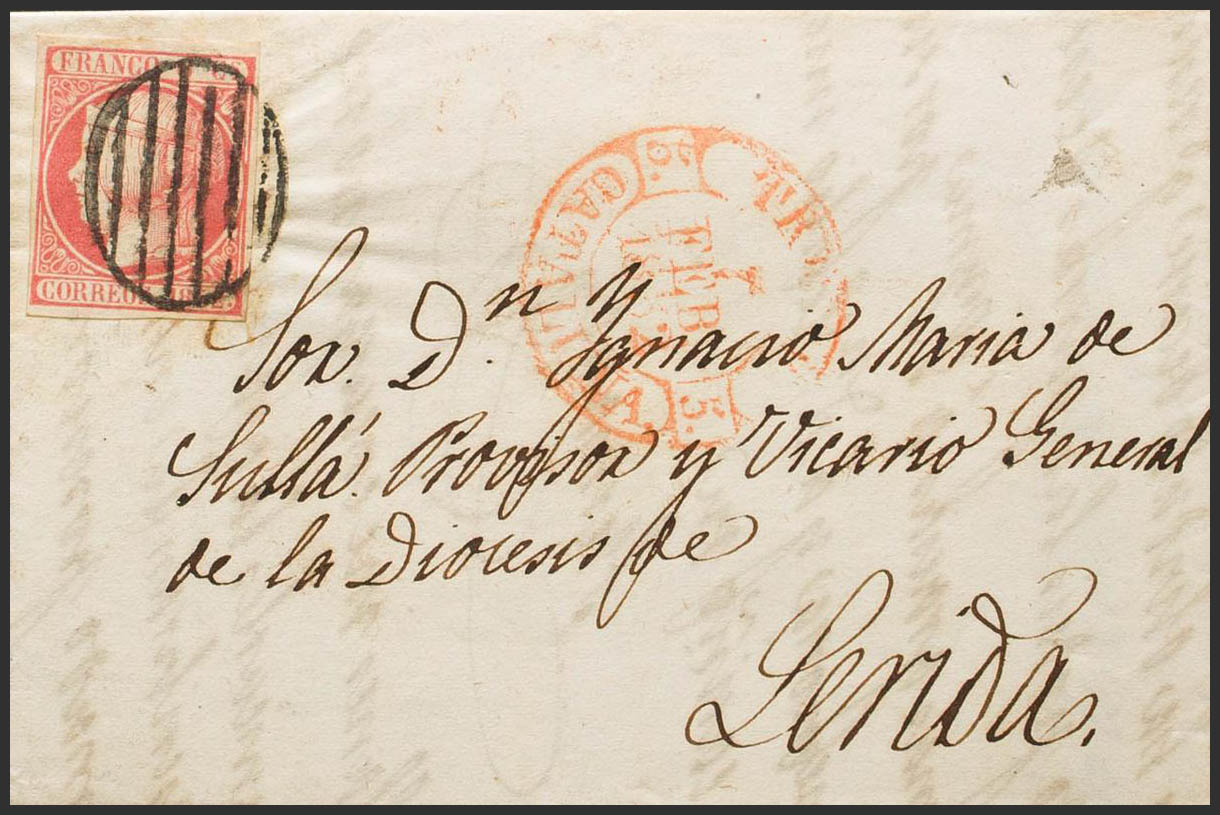 FRANCO
CORREO
CATALUÑA.
FEB
5.
Sor. Dn. Ygnacio Maria de
Sullá. Provisor y Vicario General
de la Diocesis de
Lerida.